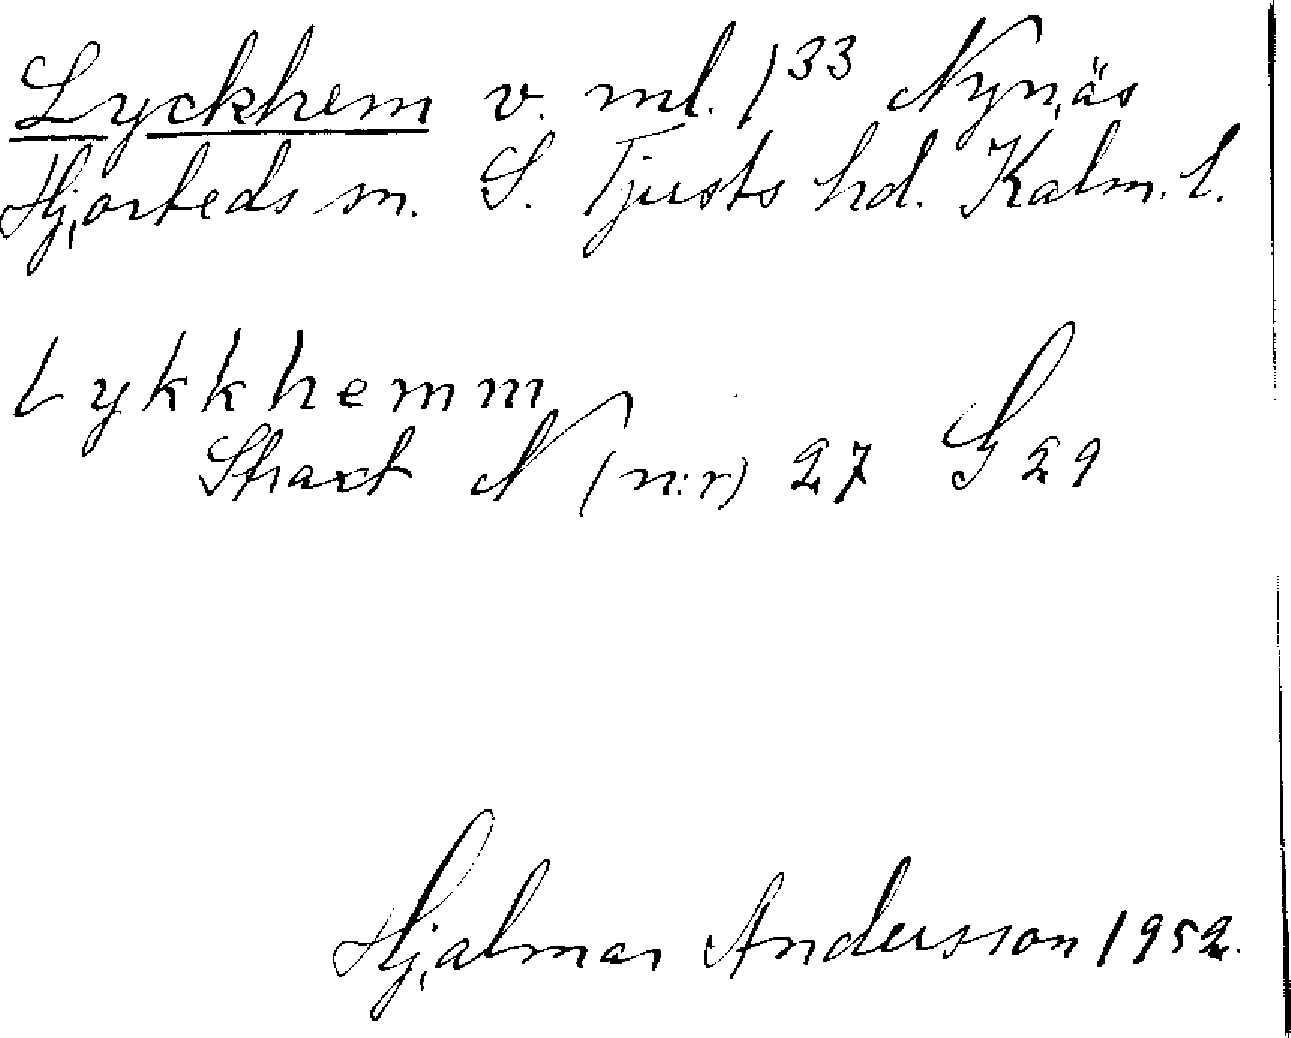 Lyckhem v. ml. 1³³ Nynäs
Hjorteds sn. S. Tjusts hd. Kalm. l.
Lykkhemm
Strax N (n:r) 27 G 29
Hjalmar Andersson 1952.